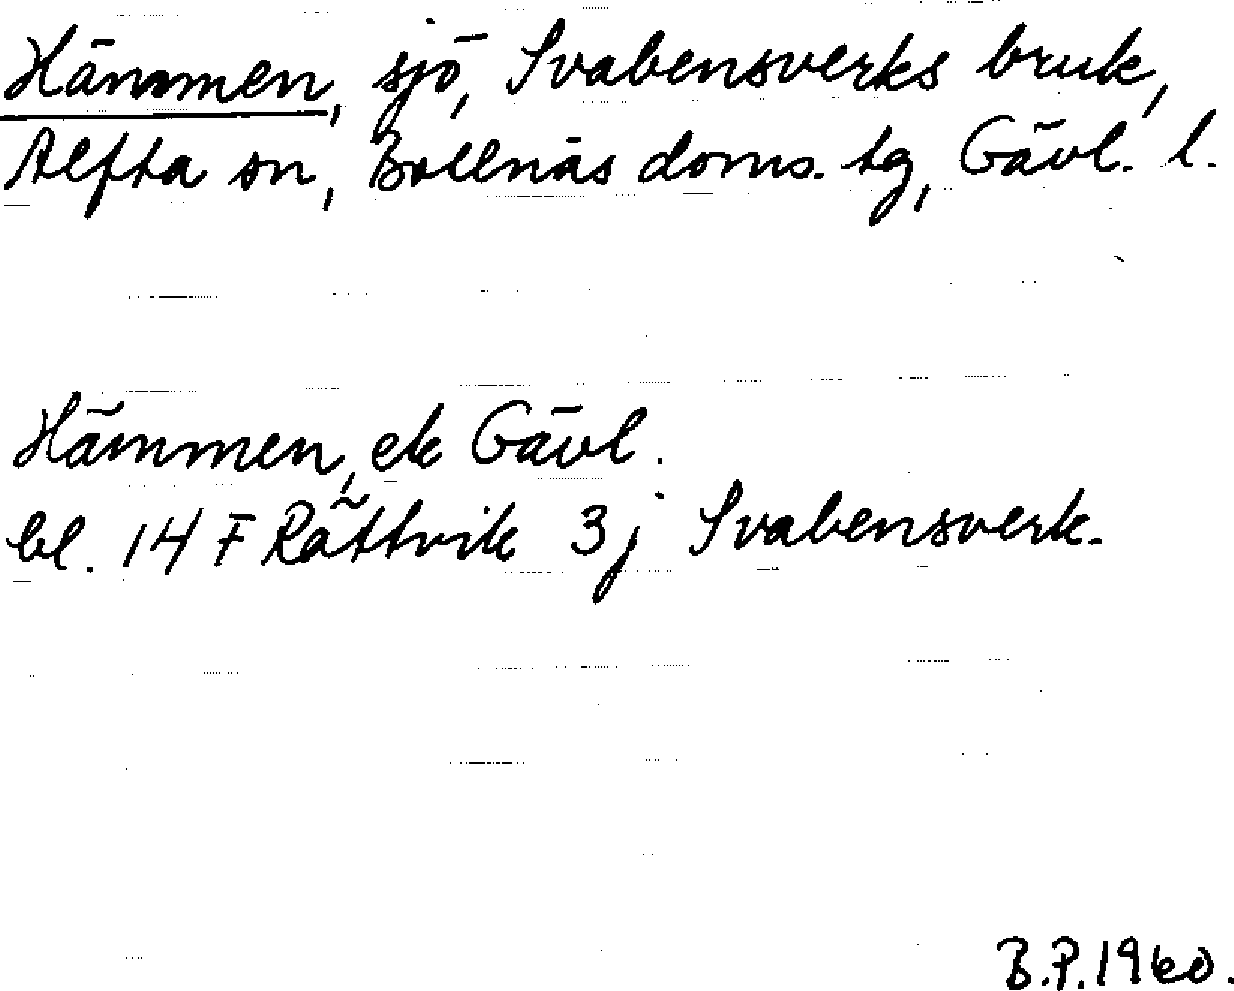 Hämmen, sjö, Svabensverks bruk,
Alfta sn, Bollnäs doms. tg, Gävl. l.
Hämmen, ek Gävl.
bl. 14 F Rättvik 3j Svabensverk.
B.P. 1960.